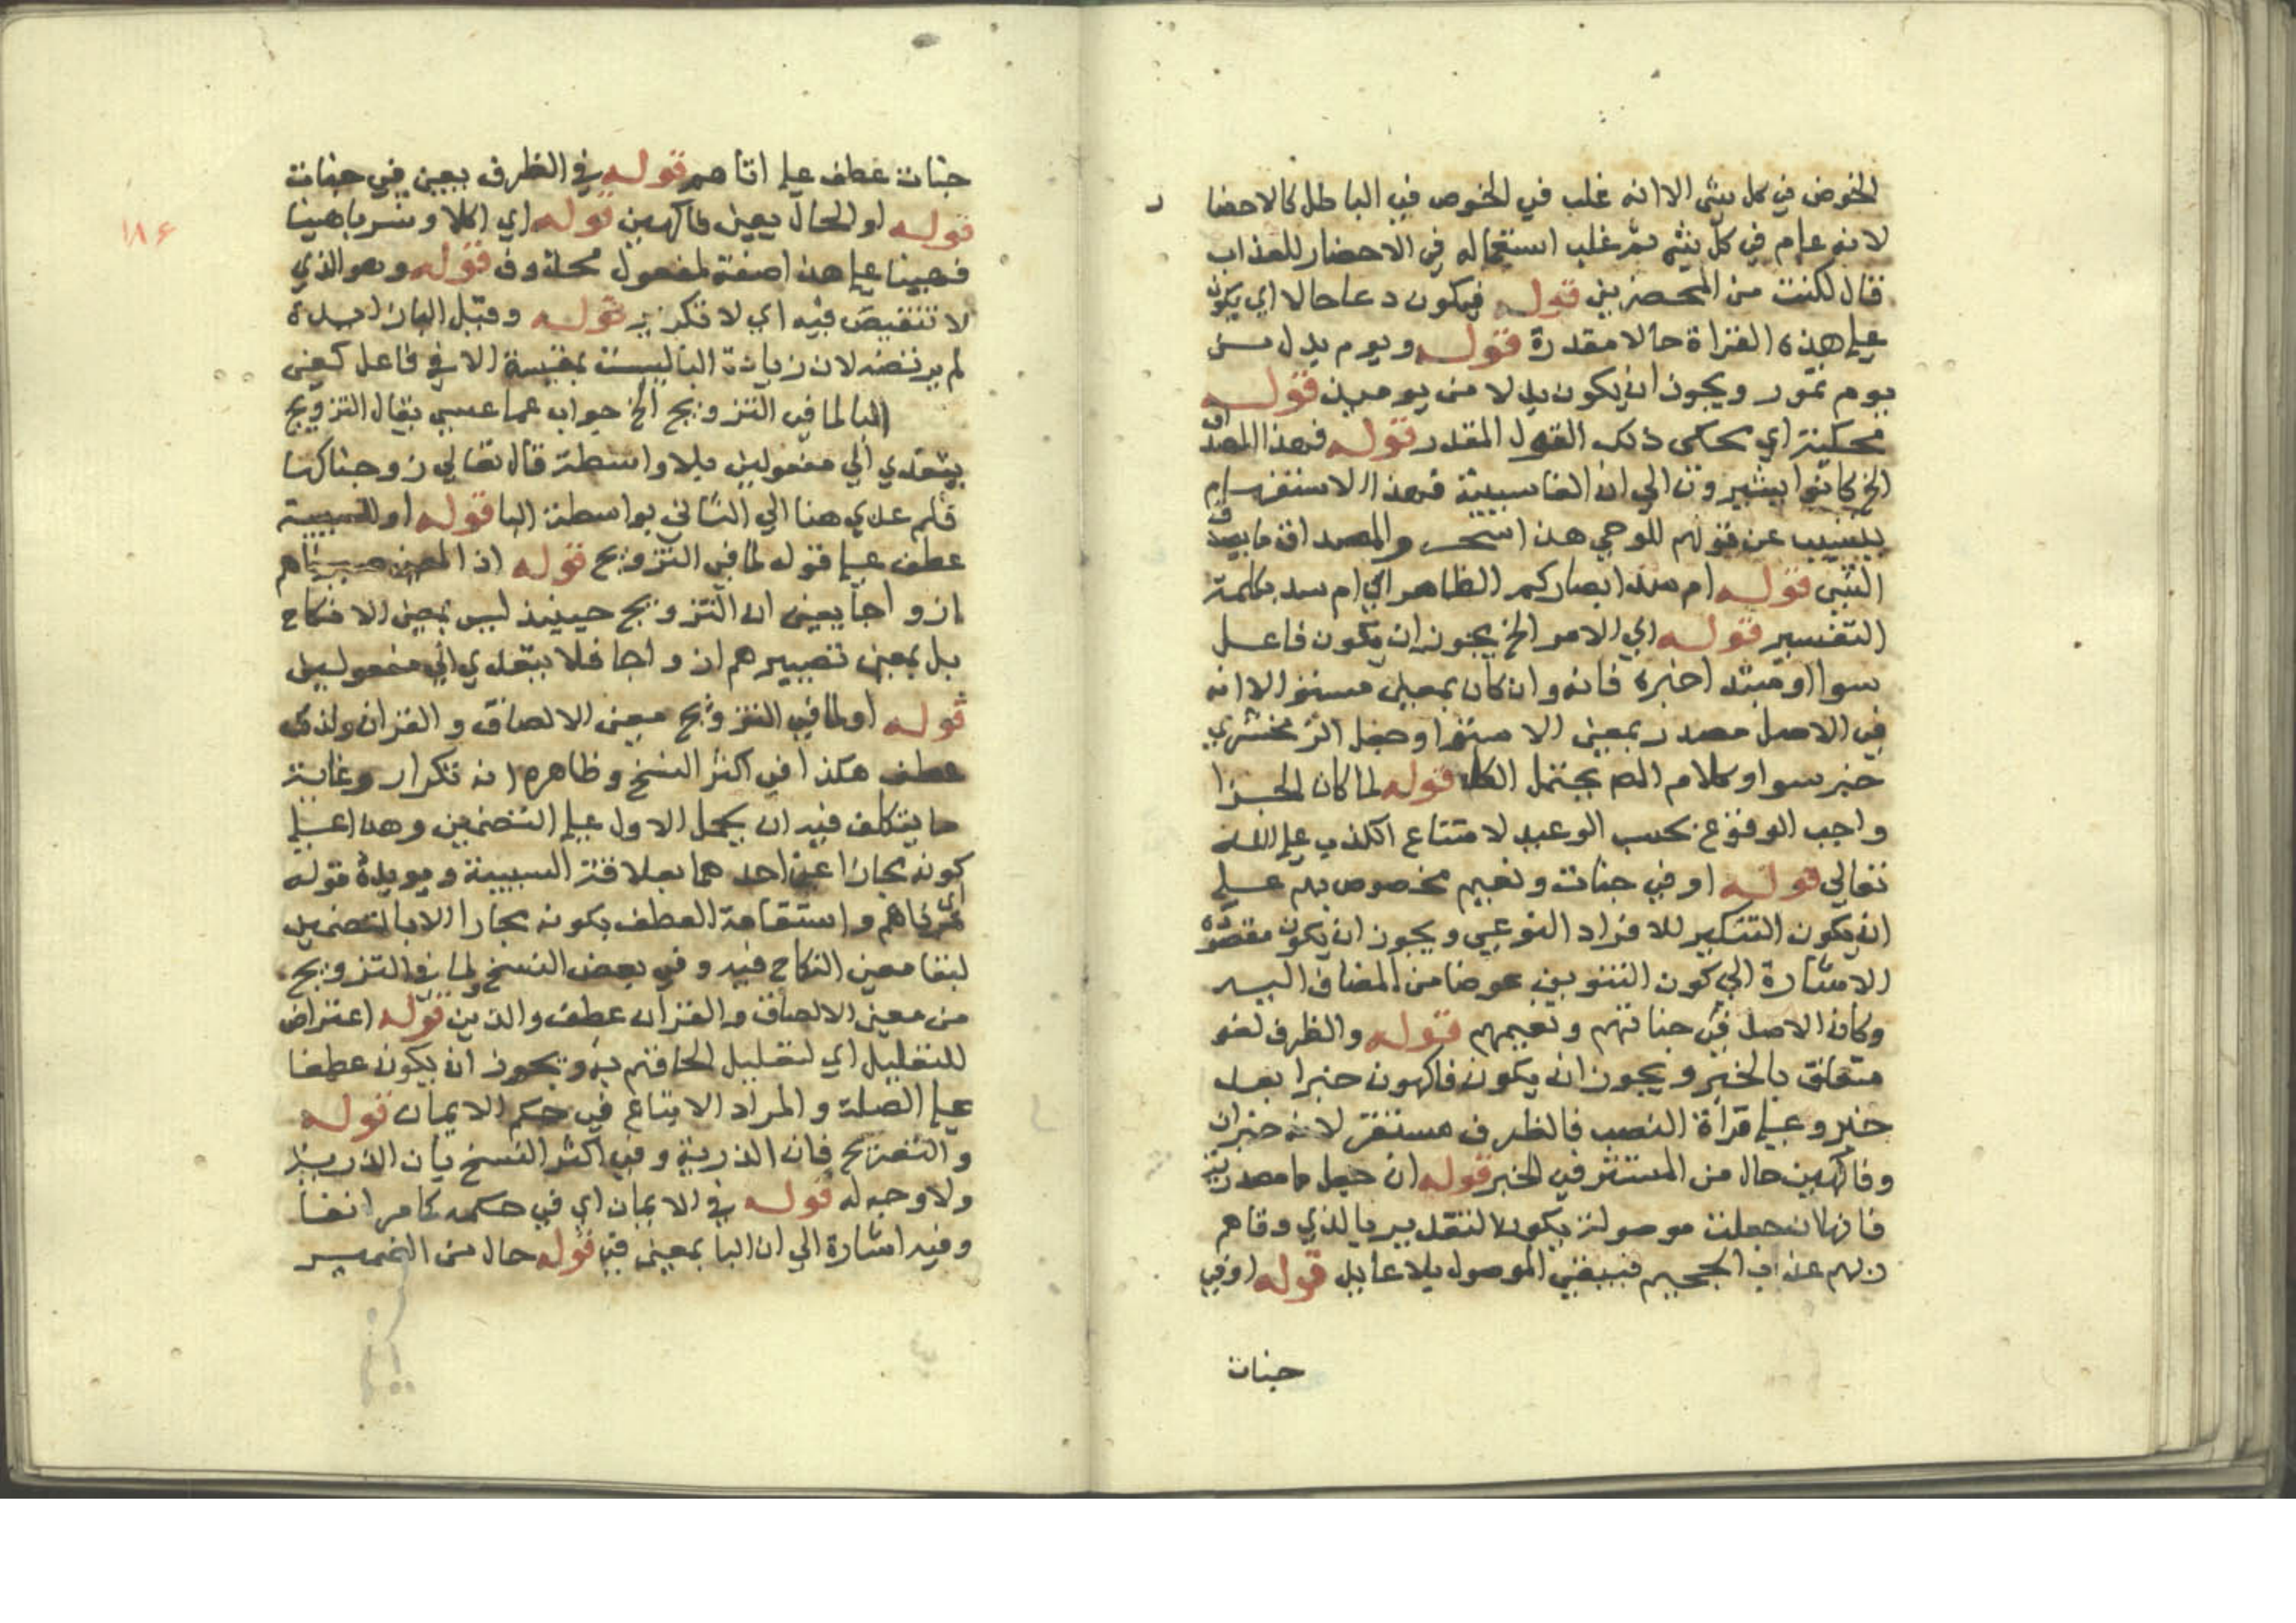 الخوض في كل شئ الا انه غلب في الخوض في الباطل كالاحضا
لانه عام في كل شئ ثم غلب استعماله في الاحضار للعذاب
قال لكنت من المحضرين قوله فيكون دعا حالا اي يكون
علي هذه القراة حالا مقدرة قوله ويوم بدل من
يوم تمور ويجوز ان يكون بدلا من يوميذ قوله
محكية اي يحكي ذلك القول المقدر قوله فهذا المصداق
الخ كانوا يشيرون الي ان الفا سببية فهذا الاستفهام
يتسبب عن قولهم للوحي هذا سحر والمصداق ما يصدق
الشي قوله ام سد ابصاركم الظاهر اي ام سد بكلمة
التفسير قوله اي الامر الخ يجوز ان يكون فاعل
سوا او مبتدا خبره فانه وان كان بمعني مستو الا انه
في الاصل مصدر بمعني الاستوا وجعل الزمخشري
خبر سوا وكلام المص يحتمل الكل قوله لما كان الجزا
واجب الوقوع بحسب الوعيد لامتناع الكذب علي الله
تعالي قوله او في جنات ونعيم مخصوص بهم علي
ان يكون التنكير للافراد النوعي ويجوز ان يكون مقصوده
الاشارة الي كون التنوين عوضا من المضاف اليه
وكان الاصل في جناتهم ونعيمهم قوله والظرف لغو
متعلق بالخبر ويجوز ان يكون فاكهون خبرا بعد
خبر وعلي قراة النصب فالظرف مستقر لانه خبران
وفاكهين حال من المستتر في الخبر قوله ان جعل ما مصدرية
فانها ان جعلت موصولة يكون التقدير بالذي وقاهم
ربهم عذاب الجحيم فيبقي الموصول بلا عايد قوله او في
جنات
جنات عطف علي اتاهم قوله في الظرف يعني في جنات
قوله او الحال يعني فاكهين قوله اي اكلا وشربا هنيا
فهنيا علي هذا صفة لمفعول محذوف قوله وهو الذي
لا تنغيص فيه اي لا تكرير قوله وقيل البازايدة
لم يرتضه لان زيادة البا ليست بمقيسة الا في فاعل كفي
البا لما في التزويج الخ جواب عما عسي يقال التزويج
يتعدي الي مفعولين بلا واسطة قال تعالي زوجناكها
فلم عدي هنا الي الثاني بواسطة البا قوله او للسببية
عطف علي قوله لما في التزويج قوله اذ المعني صيرناهم
ازواجا يعني ان التزويج حينيذ ليس بمعني الانكاح
بل بمعني تصييرهم ازواجا فلا يتعدي الي مفعولين
قوله او لما في التزويج معني الالصاق والقران ولذلك
عطف هكذا في اكثر النسخ وظاهره انه تكرار وغاية
ما يتكلف فيه ان يحمل الاول علي التضمين وهذا علي
كونه مجازا عن احدهما بعلاقة السببية ويويده قوله
اي قرناهم واستقامة العطف بكونه مجازا لا بالتضمين
لبقا معني النكاح فيه وفي بعض النسخ ولما في التزويج
من معني الالصاق والقران عطف والذين قوله اعتراض
للتعليل اي لتعليل الحاقهم به ويجوز ان يكون عطفا
علي الصلة والمراد الاتباع في حكم الايمان قوله
والتصريح فان الذرية وفي اكثر النسخ بان الذرية
ولا وجه له قوله في الايمان اي في حكمه كما مر انفا
وفيه اشارة الي ان البا بمعني في قوله حال من الضمير
١٨٤